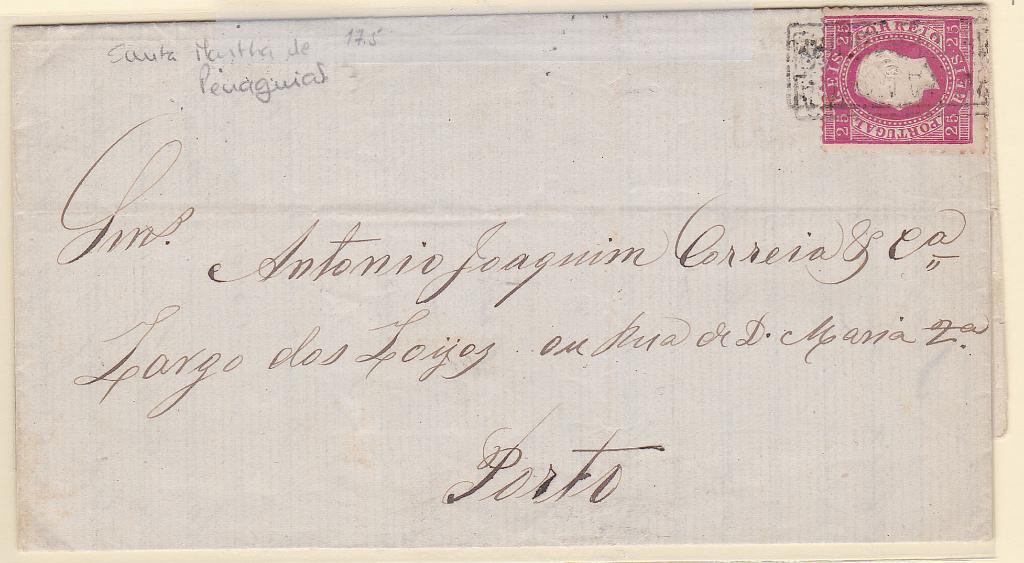 Santa Martha de
Penaguião
17.5
CORREIO
25 REIS
25 REIS
PORTUGAL
Snrs.
Antonio Joaquim Correia & Cª
Largo dos Loyos ou Rua de D. Maria 2ª
Porto